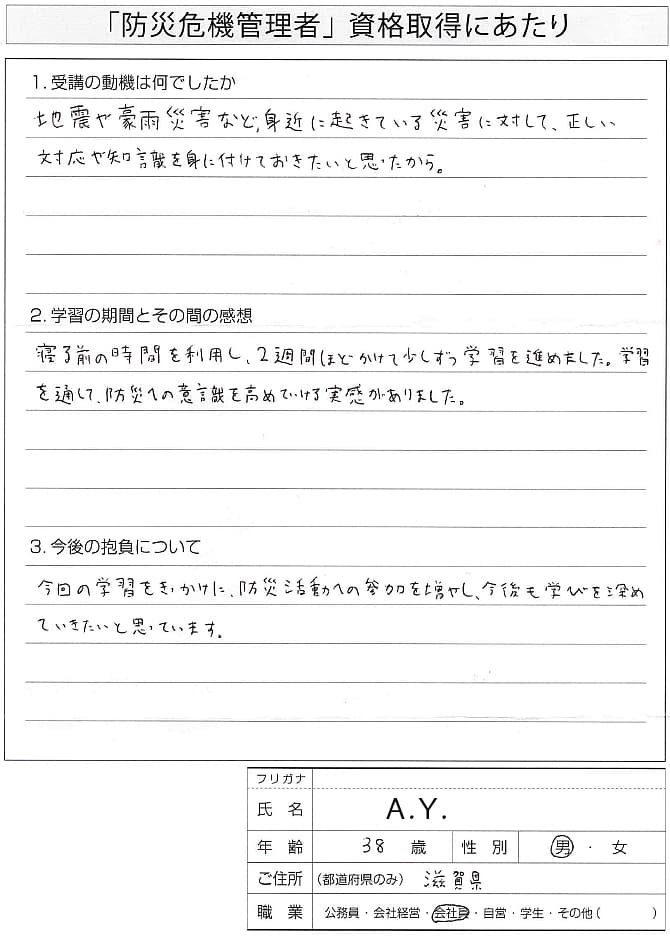 「防災危機管理者」資格取得にあたり
1. 受講の動機は何でしたか
地震や豪雨災害など、身近に起きている災害に対して、正しい
対応や知識を身に付けておきたいと思ったから。
2. 学習の期間とその間の感想
寝る前の時間を利用し、2週間ほどかけて少しずつ学習を進めました。学習
を通して、防災への意識を高めていける実感がありました。
3. 今後の抱負について
今回の学習をきっかけに、防災活動への参加を増やし、今後も学びを深め
ていきたいと思っています。
フリガナ
氏 名 A.Y.
年 齢 38 歳 性 別 男 ・ 女
ご住所 (都道府県のみ) 滋賀県
職 業 公務員・会社経営・会社員・自営・学生・その他( )